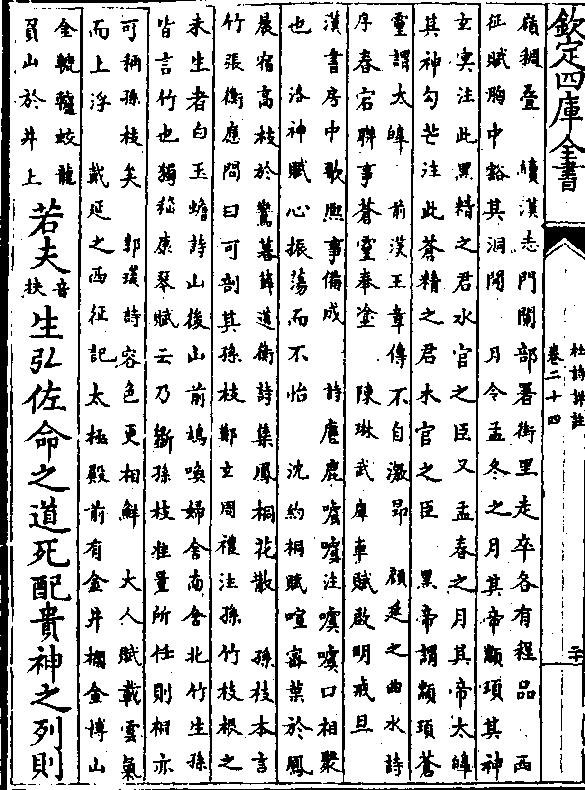 欽定四庫全書
杜詩詳註
卷二十四
二十
嶺稠疊　續漢志門闌部署街里走卒各有程品　西
征賦胸中豁其洞開　月令孟冬之月其帝顓頊其神
玄冥注此黑精之君水官之臣又孟春之月其帝太皞
其神勾芒注此蒼精之君木官之臣　黑帝謂顓頊蒼
靈謂太皞　前漢王章傳不自激昂　顔延之曲水詩
序春官聯事蒼靈奉塗　陳琳武庫車賦啟明戒旦
漢書房中歌熙事備成　詩麀鹿噳噳注噳噳口相聚
也　洛神賦心振蕩而不怡　沈約桐賦喧密葉於鳳
晨宿高枝於鸞暮薛道衡詩集鳳桐花散　孫枝本言
竹張衡應問曰可剖其孫枝鄭玄周禮注孫竹枝根之
未生者白玉蟾詩山後山前鳩喚婦舍南舍北竹生孫
皆言竹也獨嵇康琴賦云乃斵孫枝准量所任則桐亦
可稱孫枝矣　郭璞詩容色更相鮮　大人賦載雲氣
而上浮　戴延之西征記太極殿前有金井欄金博山
金轆轤蛟龍負山於井上
若夫音扶生弘佐命之道死配貴神之列則